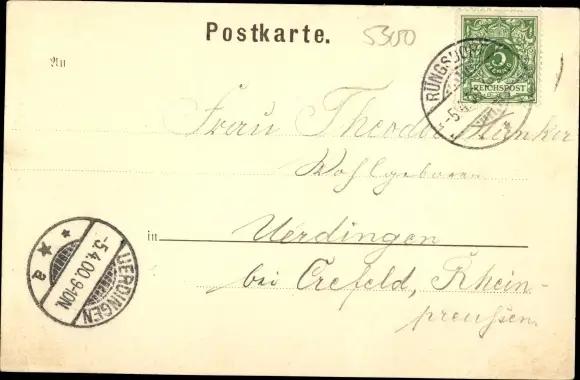 Postkarte.
5300
An
5
PFENNIG
REICHSPOST
RÜNGSDORF
Frau Theodor
Wohlgeboren
in Uerdingen
bei Crefeld, Rhein-
preussen.
UERDINGEN
-5.4.00.9-10N.
* * a